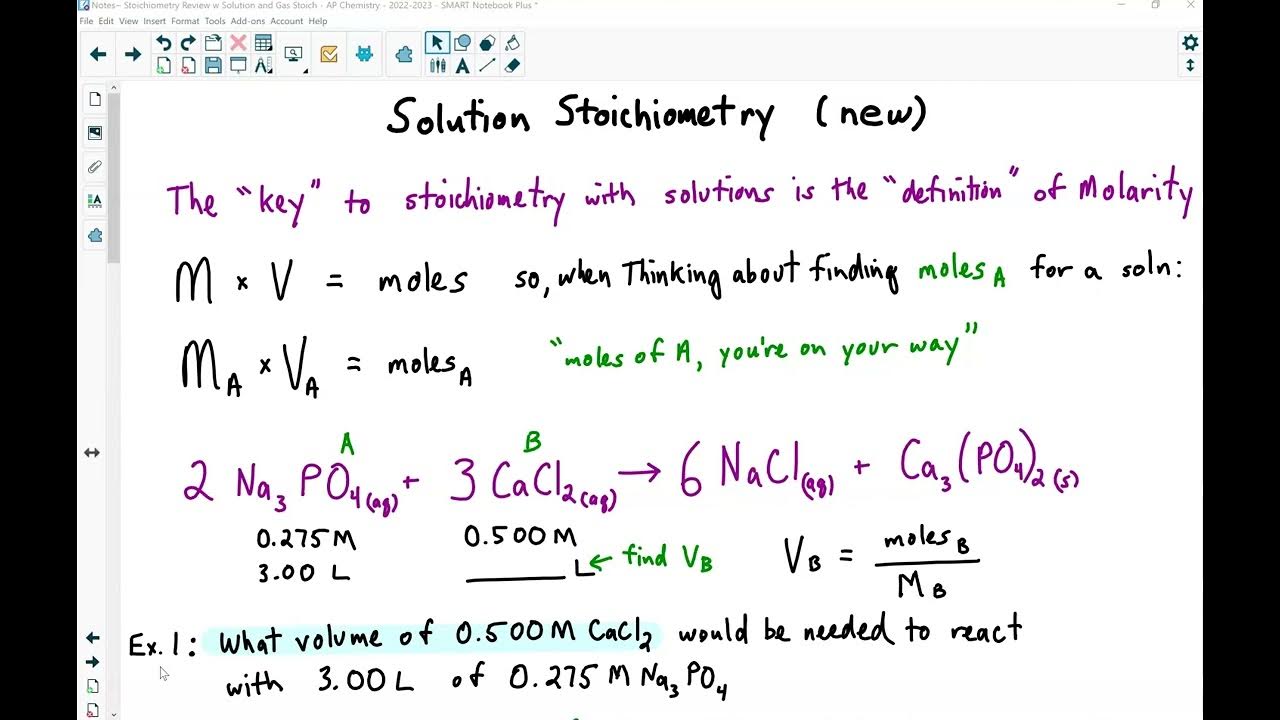 Notes~ Stoichiometry Review w Solution and Gas Stoich - AP Chemistry - 2022-2023 - SMART Notebook Plus *
File Edit View Insert Format Tools Add-ons Account Help
Solution Stoichiometry (new)
The "key" to stoichiometry with solutions is the "definition" of Molarity
M × V = moles so, when Thinking about finding moles A for a soln:
M A × V A = moles A "moles of A, you're on your way"
A B
2 Na₃PO₄(aq) + 3 CaCl₂(aq) → 6 NaCl(aq) + Ca₃(PO₄)₂(s)
0.275 M 0.500 M
3.00 L ______ L ← find V B V B = moles B / M B
Ex. 1: What volume of 0.500 M CaCl₂ would be needed to react
with 3.00 L of 0.275 M Na₃PO₄